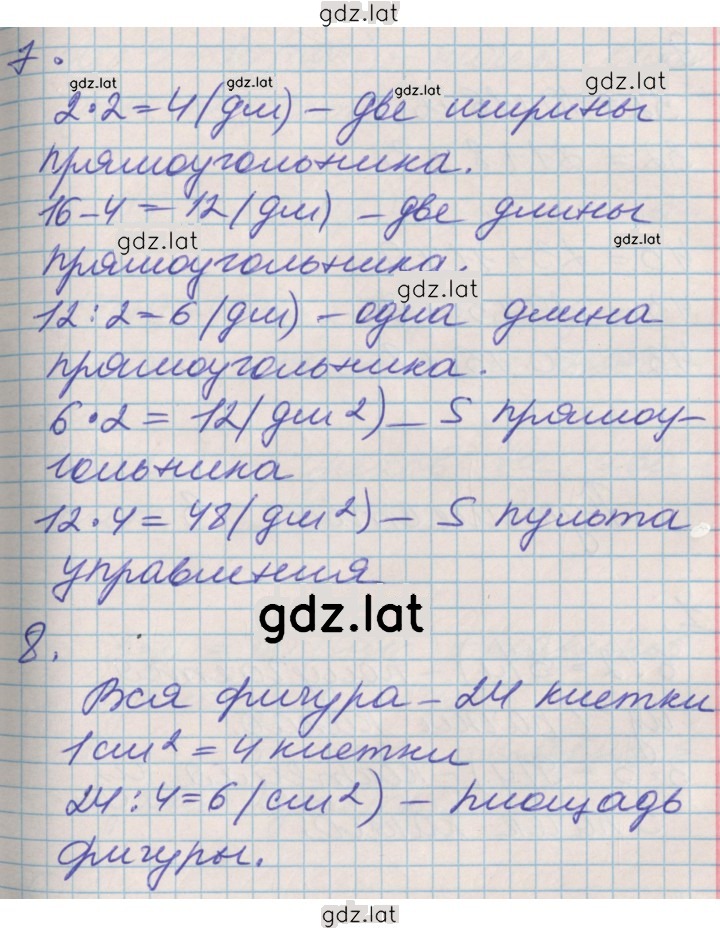 gdz.lat
7.
gdz.lat gdz.lat gdz.lat gdz.lat
2·2=4(дм) – две ширины
прямоугольника.
16-4=12(дм) – две длины
gdz.lat gdz.lat
прямоугольника.
gdz.lat
12:2=6(дм) – одна длина
прямоугольника.
6·2=12(дм²) – S прямоу-
гольника
12·4=48(дм²) – S пульта
управления
gdz.lat
8.
Вся фигура – 24 клетки
1см²=4 клетки
24:4=6(см²) – площадь
фигуры.
gdz.lat